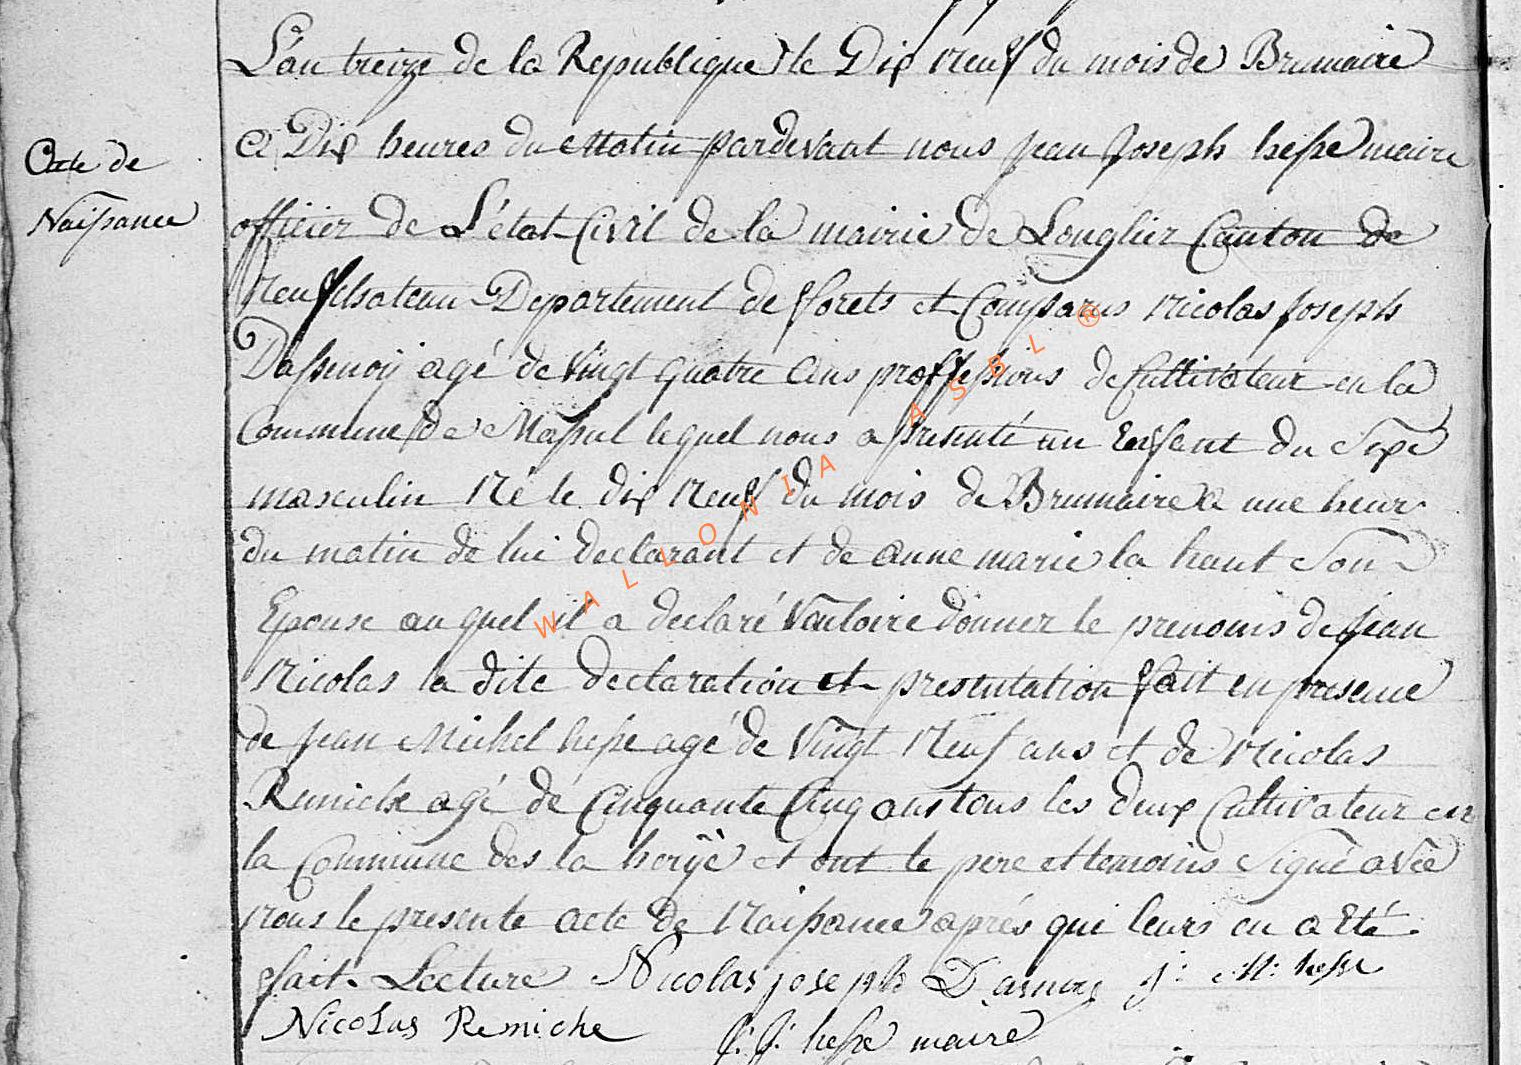 L'an treize de la Republique le Dix Neuf du mois de Brumaire
Acte de
Naissance
a Dix heures du Matin pardevant nous jean Joseph hesse maire
officier de L'état Civil de la mairie de Longlier Canton de
Neufchateau Departement de fforets et Comparus Nicolas Joseph
Dassenoÿ agé de Vingt quatre ans proffessions de Cultivateur en la
Commune de Massul lequel nous a presenté un Enfant du Sexe
masculin Né le dix Neuf du mois de Brumaire a une heur
du matin de lui declarant et de anne marie la haut Son
Epouse au quel il a declaré Vouloire donner le prenoms de jean
Nicolas la dite declaration et prestutation fait en presence
de jean Michel hesse agé de Vingt Neuf ans et de Nicolas
Remiche agé de Cinquante Cinq ans tous les deux Cultivateur en
la Commune des la herÿè et ont le pere et temoins Signé avec
nous le presente acte de Naissance aprés qui leurs en a Eté
fait Lecture Nicolas joseph Dasnoy j: M: hesse
Nicolas Remiche J: J: hesse maire
WALLONIA ASBL ®